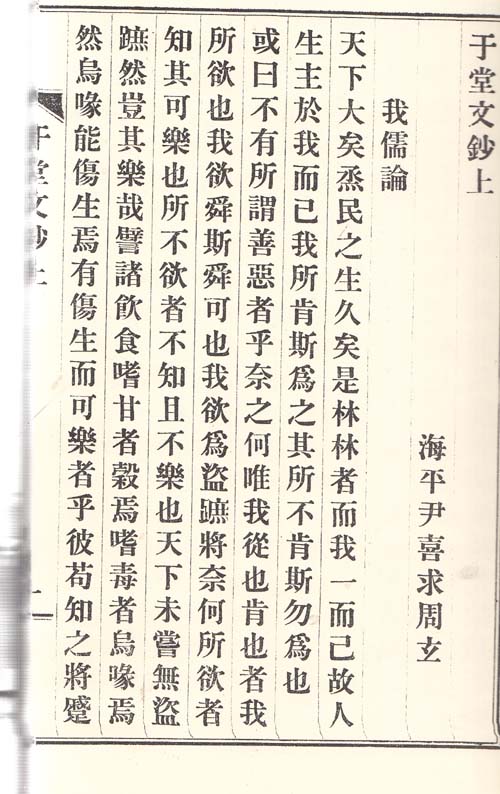 于堂文鈔上
海平尹喜求周玄
我儒論
天下大矣烝民之生久矣是林林者而我一而已故人
生主於我而已我所肯斯爲之其所不肯斯勿爲也
或曰不有所謂善惡者乎奈之何唯我從也肯也者我
所欲也我欲舜斯舜可也我欲爲盜蹠將奈何所欲者
知其可樂也所不欲者不知且不樂也天下未嘗無盜
蹠然豈其樂哉譬諸飮食嗜甘者穀焉嗜毒者烏喙焉
然烏喙能傷生焉有傷生而可樂者乎彼苟知之將蹙
于堂文鈔上
一